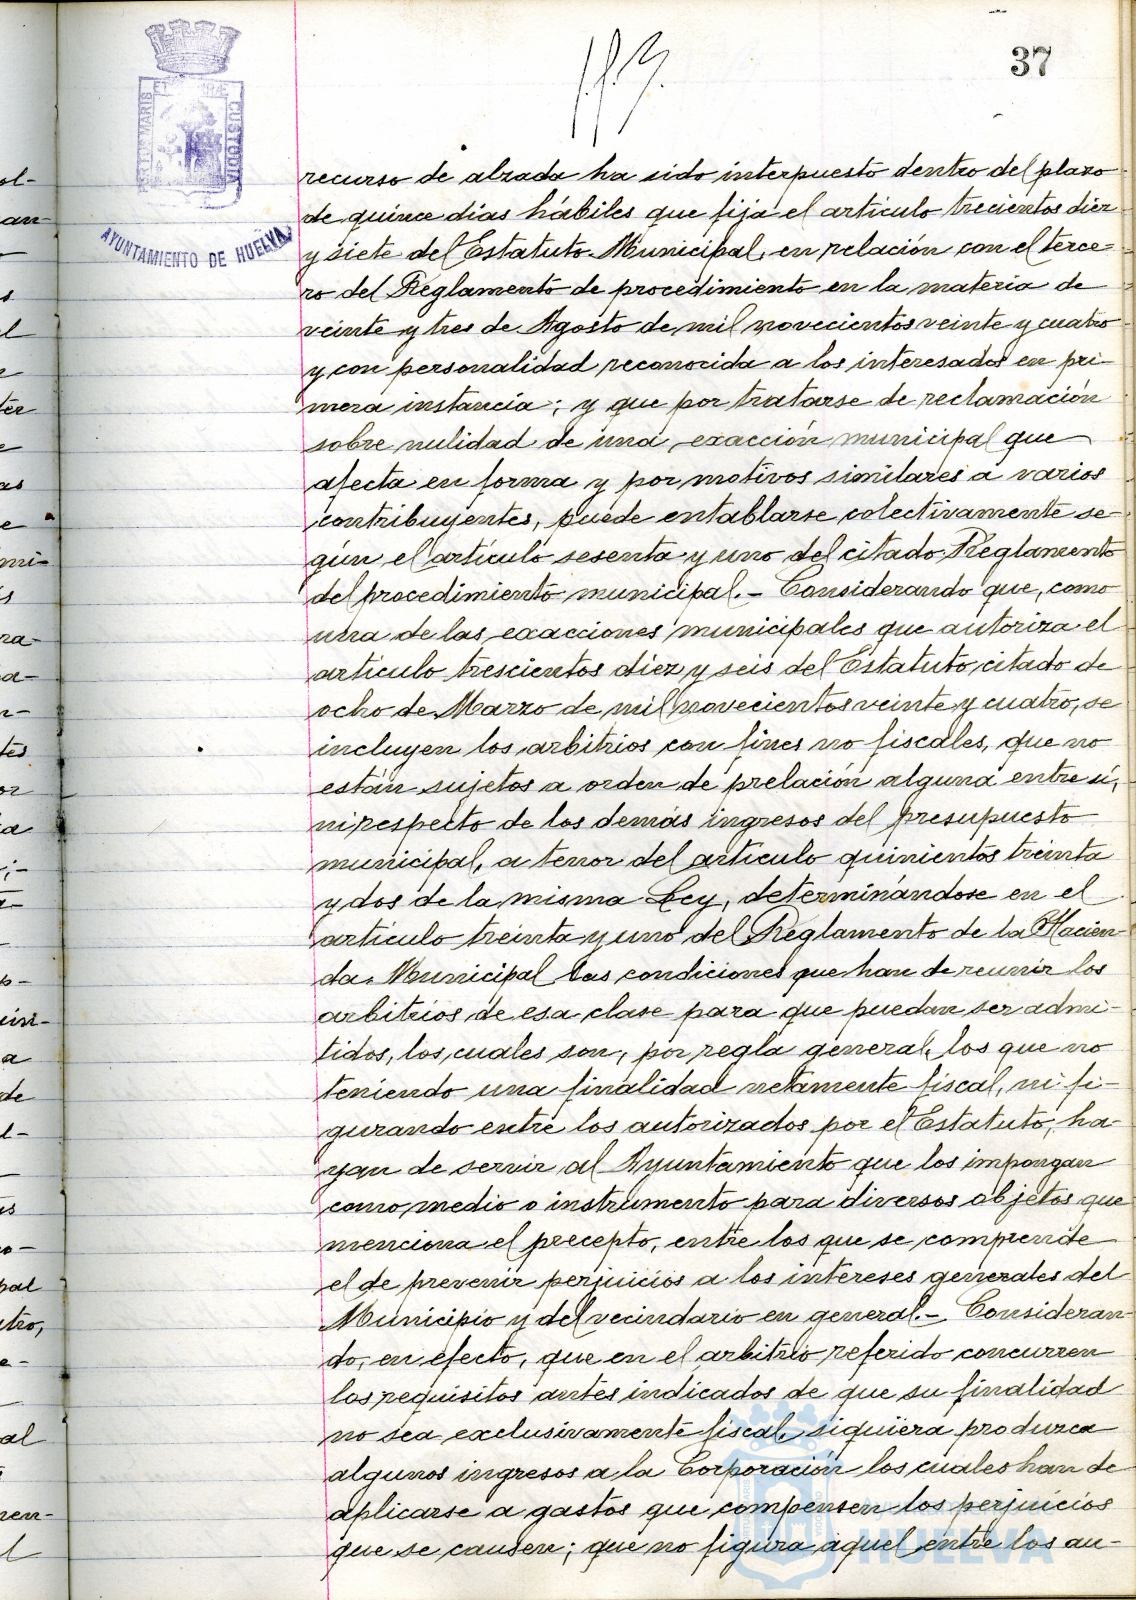 37
PORTUS MARIS ET TERRÆ CUSTODIA
AYUNTAMIENTO DE HUELVA
recurso de alzada ha sido interpuesto dentro del plazo
de quince dias hábiles que fija el articulo trecientos diez
y siete del Estatuto Municipal, en relación con el terce=
ro del Reglamento de procedimiento en la materia de
veinte y tres de Agosto de mil novecientos veinte y cuatro
y con personalidad reconocida a los interesados en pri-
mera instancia; y que por tratarse de reclamación
sobre nulidad de una exacción municipal que
afecta en forma y por motivos similares a varios
contribuyentes, puede entablarse colectivamente se-
gún el artículo sesenta y uno del citado Reglamento
del procedimiento municipal.- Considerando que, como
una de las exacciones municipales que autoriza el
artículo trescientos diez y seis del Estatuto citado de
ocho de Marzo de mil novecientos veinte y cuatro, se
incluyen los arbitrios con fines no fiscales, que no
están sujetos a orden de prelación alguna entre sí,
ni respecto de los demás ingresos del presupuesto
municipal, a tenor del artículo quinientos treinta
y dos de la misma Ley, determinándose en el
artículo treinta y uno del Reglamento de la Hacien-
da Municipal las condiciones que han de reunir los
arbitrios de esa clase para que puedan ser admi-
tidos, los cuales son, por regla general, los que no
teniendo una finalidad netamente fiscal, ni fi-
gurando entre los autorizados por el Estatuto, ha-
yan de servir al Ayuntamiento que los impongan
como medio o instrumento para diversos objetos que
menciona el precepto, entre los que se comprende
el de prevenir perjuicios a los intereses generales del
Municipio y del vecindario en general.- Consideran-
do, en efecto, que en el arbitrio referido concurren
los requisitos antes indicados de que su finalidad
no sea exclusivamente fiscal, siquiera produzca
algunos ingresos a la Corporación los cuales han de
aplicarse a gastos que compensen los perjuicios
que se causen; que no figura aquel entre los au-
HUELVA